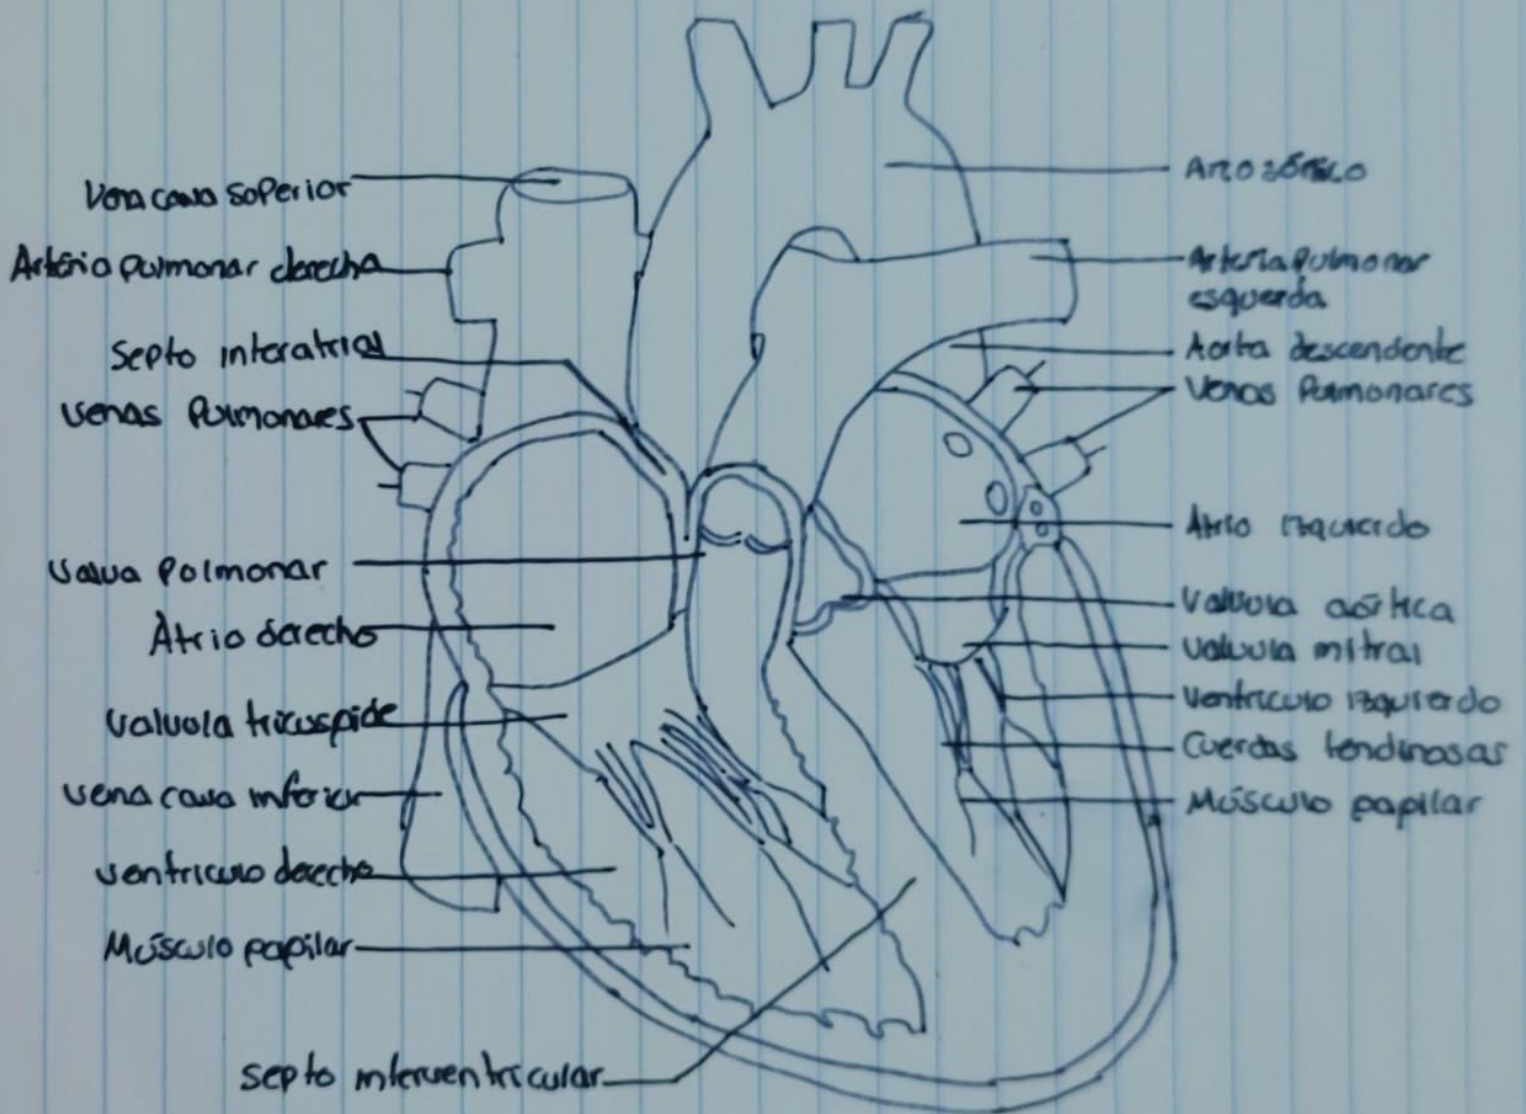 Vena cava soperior
Artéria pulmonar derecha
Septo interatrial
Venas Pulmonares
Valva Polmonar
Átrio derecho
Valvola tricuspide
Vena cava inferior
Ventriculo derecho
Músculo papilar
Septo interventricular
Arteria Pulmonar
esquerda
Aorta descendente
Venas Pulmonares
Átrio izquierdo
Valvula aórtica
Valvula mitral
Ventriculo izquierdo
Cuerdas tendinosas
Músculo papilar